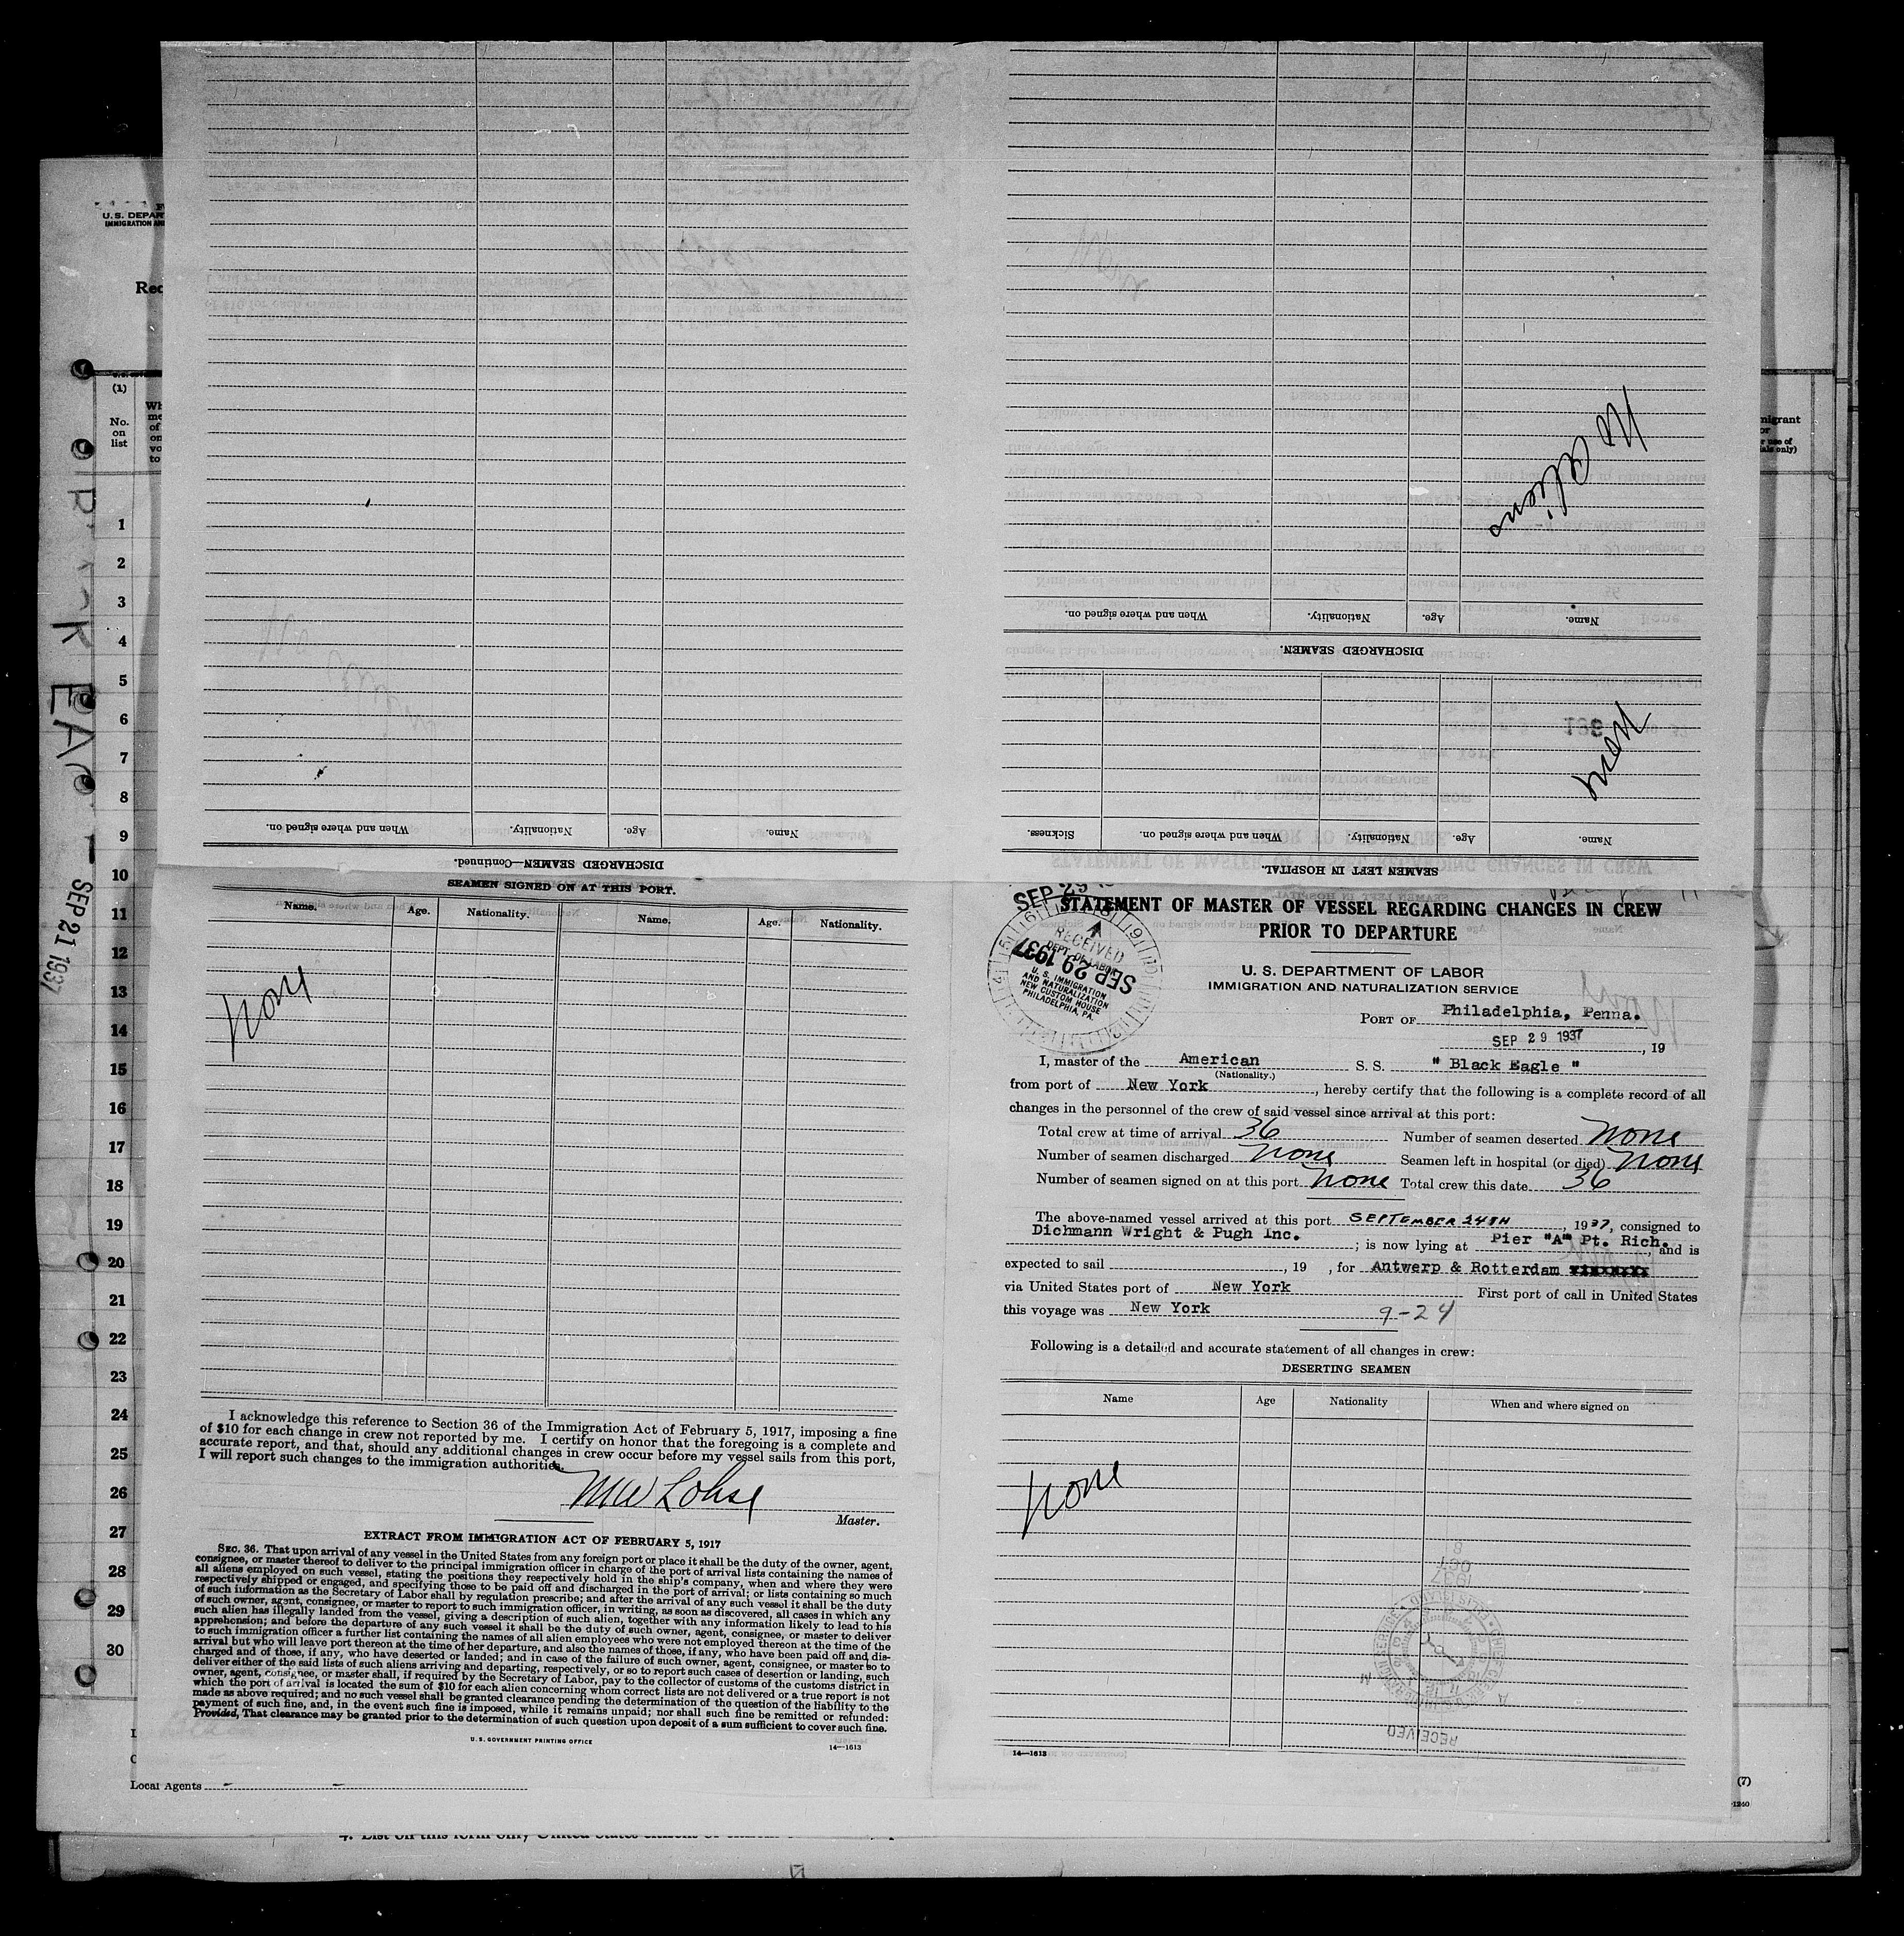 U. S. DEPAR
IMMIGRATION AN
Rec
(1)
No.
on
list
Wh
me
of
on
vo
to
migrant
or
r use of
als only)
1
2
3
4
5
6
7
8
9
10
11
12
13
14
15
16
17
18
19
20
21
22
23
24
25
26
27
28
29
30
SEP 21 1937
Local Agents
(7)
1240
DISCHARGED SEAMEN—Continued.
Name.
Age.
Nationality.
When and where signed on.
SEAMEN LEFT IN HOSPITAL.
Name.
Age.
Nationality.
When and where signed on.
Sickness.
None
DISCHARGED SEAMEN.
Name.
Age.
Nationality.
When and where signed on.
SEAMEN SIGNED ON AT THIS PORT.
Name. Age. Nationality. Name. Age. Nationality.
None
I acknowledge this reference to Section 36 of the Immigration Act of February 5, 1917, imposing a fine
of $10 for each change in crew not reported by me. I certify on honor that the foregoing is a complete and
accurate report, and that, should any additional changes in crew occur before my vessel sails from this port,
I will report such changes to the immigration authorities.
MW Lohse
Master.
EXTRACT FROM IMMIGRATION ACT OF FEBRUARY 5, 1917
SEC. 36. That upon arrival of any vessel in the United States from any foreign port or place it shall be the duty of the owner, agent,
consignee, or master thereof to deliver to the principal immigration officer in charge of the port of arrival lists containing the names of
all aliens employed on such vessel, stating the positions they respectively hold in the ship's company, when and where they were
respectively shipped or engaged, and specifying those to be paid off and discharged in the port of arrival; or lists containing so much
of such information as the Secretary of Labor shall by regulation prescribe; and after the arrival of any such vessel it shall be the duty
of such owner, agent, consignee, or master to report to such immigration officer, in writing, as soon as discovered, all cases in which any
such alien has illegally landed from the vessel, giving a description of such alien, together with any information likely to lead to his
apprehension; and before the departure of any such vessel it shall be the duty of such owner, agent, consignee, or master to deliver
to such immigration officer a further list containing the names of all alien employees who were not employed thereon at the time of the
arrival but who will leave port thereon at the time of her departure, and also the names of those, if any, who have been paid off and dis-
charged and of those, if any, who have deserted or landed; and in case of the failure of such owner, agent, consignee, or master so to
deliver either of the said lists of such aliens arriving and departing, respectively, or so to report such cases of desertion or landing, such
owner, agent, consignee, or master shall, if required by the Secretary of Labor, pay to the collector of customs of the customs district in
which the port of arrival is located the sum of $10 for each alien concerning whom correct lists are not delivered or a true report is not
made as above required; and no such vessel shall be granted clearance pending the determination of the question of the liability to the
payment of such fine, and, in the event such fine is imposed, while it remains unpaid; nor shall such fine be remitted or refunded:
Provided, That clearance may be granted prior to the determination of such question upon deposit of a sum sufficient to cover such fine.
U. S. GOVERNMENT PRINTING OFFICE
14—1613
STATEMENT OF MASTER OF VESSEL REGARDING CHANGES IN CREW
PRIOR TO DEPARTURE
RECEIVED
DEPT. OF LABOR
SEP 29 1937
U. S. IMMIGRATION
AND NATURALIZATION
NEW CUSTOM HOUSE
PHILADELPHIA, PA.
U. S. DEPARTMENT OF LABOR
IMMIGRATION AND NATURALIZATION SERVICE
PORT OF Philadelphia, Penna.
SEP 29 1937, 19
I, master of the American S. S. " Black Eagle "
(Nationality.)
from port of New York, hereby certify that the following is a complete record of all
changes in the personnel of the crew of said vessel since arrival at this port:
Total crew at time of arrival 36 Number of seamen deserted None
Number of seamen discharged None Seamen left in hospital (or died) None
Number of seamen signed on at this port None Total crew this date 36
The above-named vessel arrived at this port SEPTEMBER 24TH, 1937, consigned to
Dichmann Wright & Pugh Inc. ; is now lying at Pier "A" Pt. Rich., and is
expected to sail , 19 , for Antwerp & Rotterdam
via United States port of New York First port of call in United States
this voyage was New York 9-24
Following is a detailed and accurate statement of all changes in crew:
DESERTING SEAMEN
Name Age Nationality When and where signed on
None
RECEIVED
14—1613